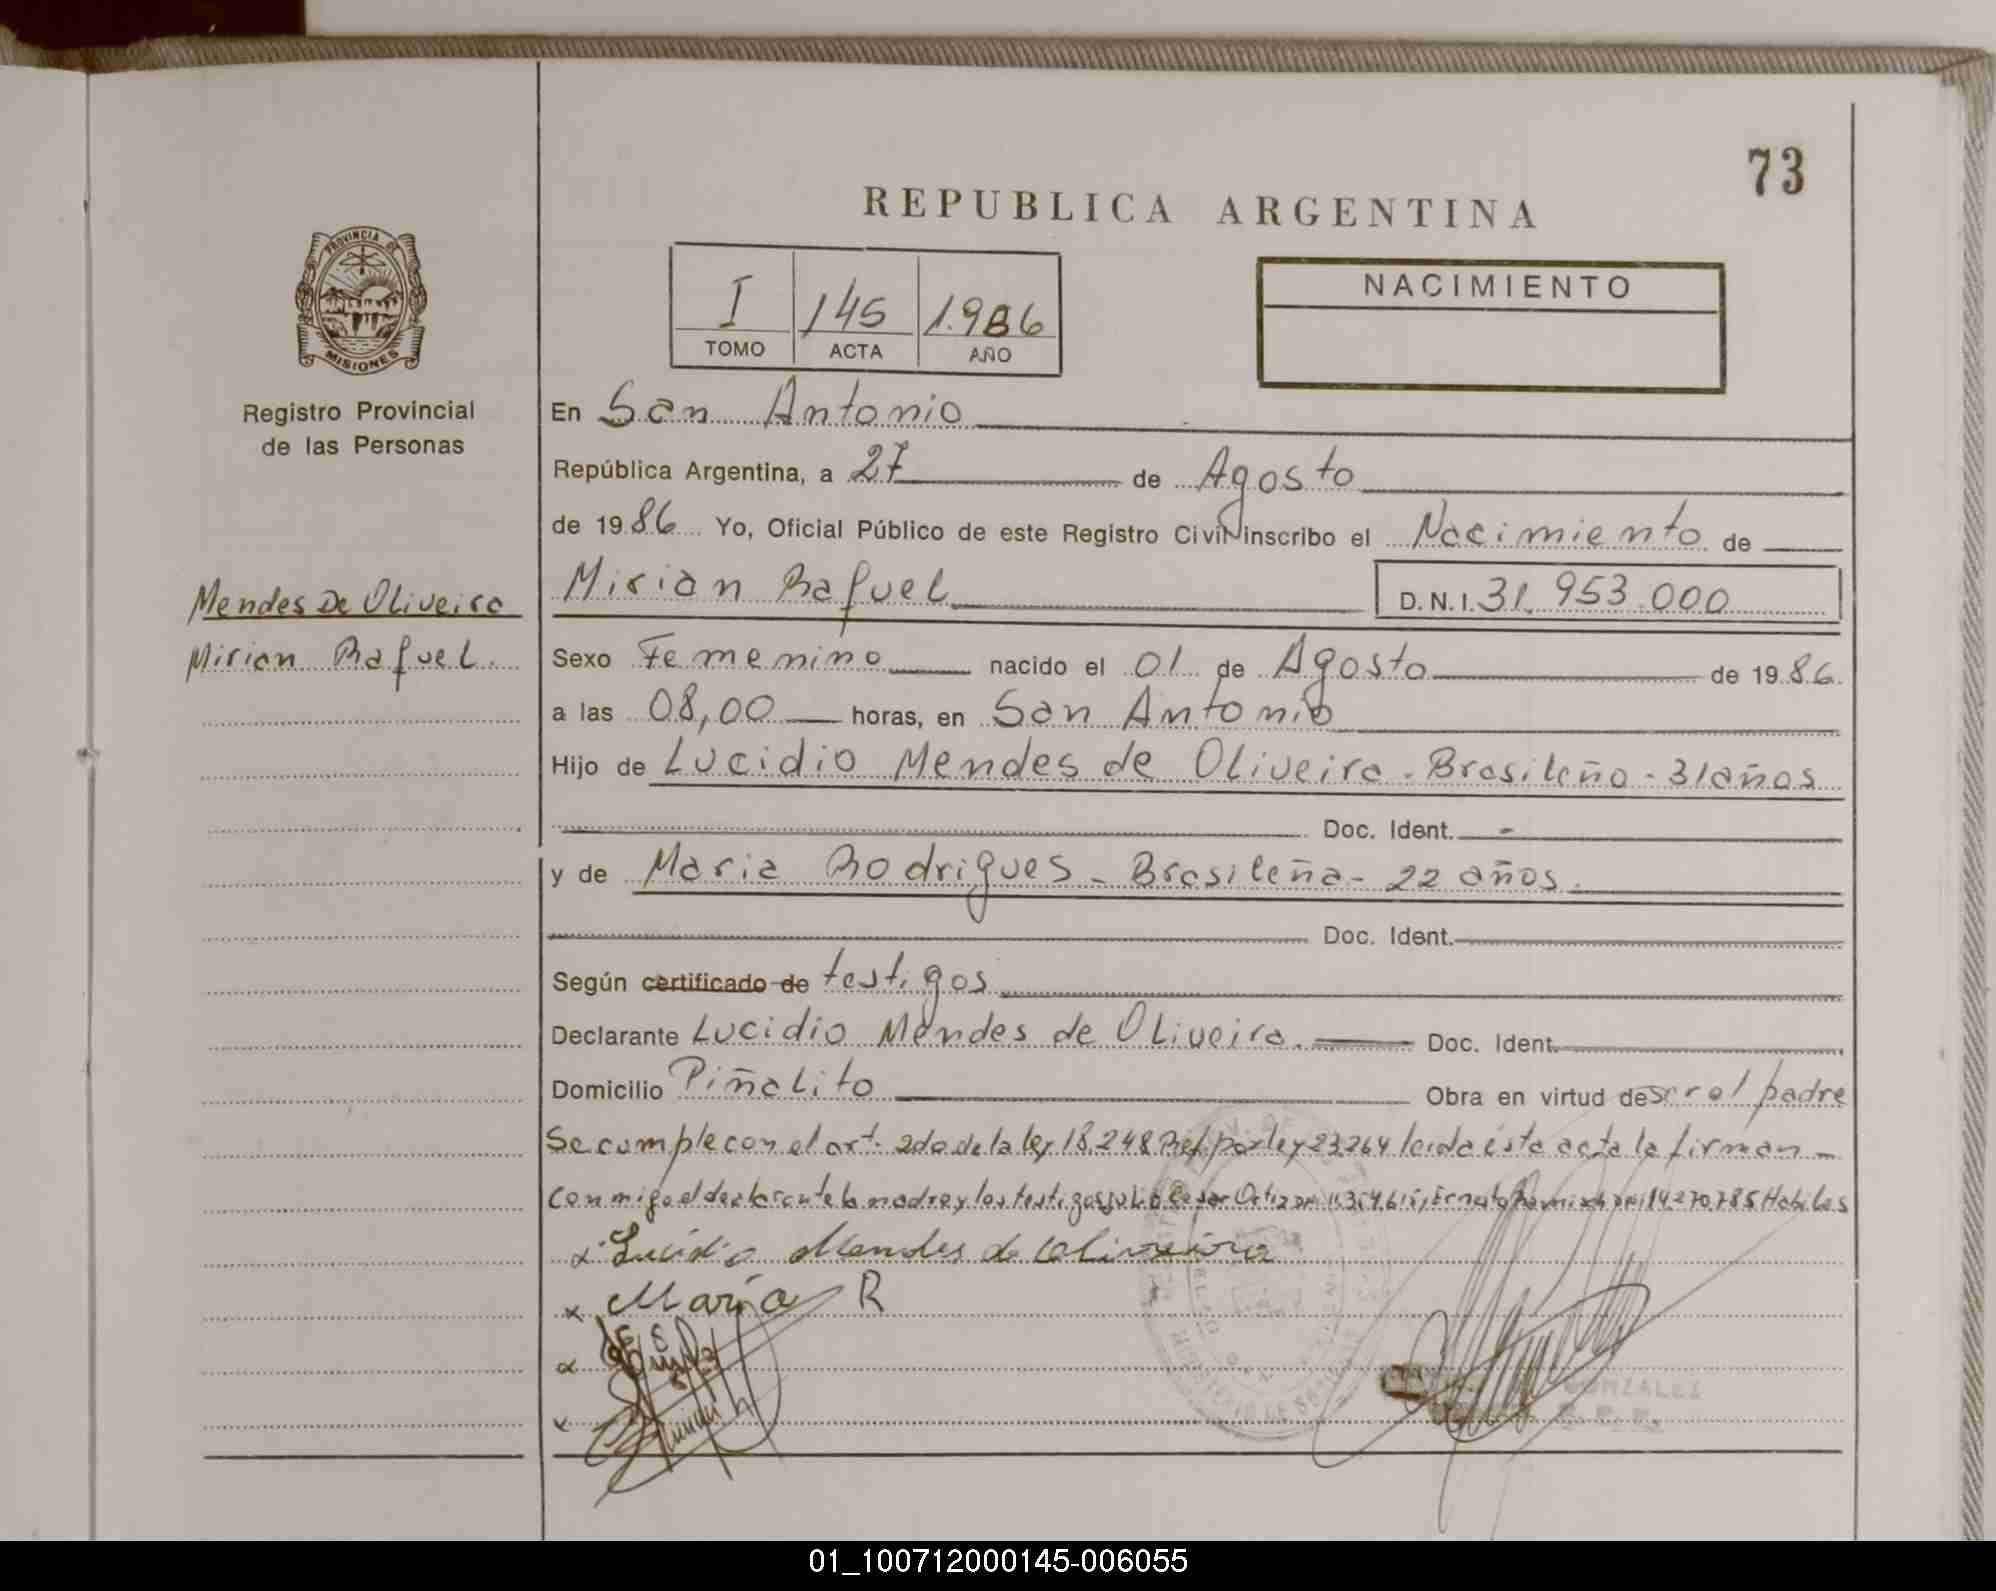 73
REPUBLICA ARGENTINA
PROVINCIA DE
MISIONES
Registro Provincial
de las Personas
I 145 1.986
TOMO ACTA AÑO
NACIMIENTO
En San Antonio
República Argentina, a 27 de Agosto
de 1986 Yo, Oficial Público de este Registro Civil inscribo el Nacimiento de
Mirian Rafuel D.N.I. 31.953.000
Mendes De Oliveira
Mirian Rafuel.
Sexo Femenino nacido el 01 de Agosto de 1986.
a las 08,00 horas, en San Antonio
Hijo de Lucidio Mendes de Oliveira - Brasileño - 31 años
Doc. Ident. -
y de Maria Rodrigues - Brasileña - 22 años.
Doc. Ident.
Según certificado de testigos
Declarante Lucidio Mendes de Oliveira. Doc. Ident.
Domicilio Piñalito Obra en virtud de ser el padre
Se cumple con el art. 2do de la ley 18.248 Ref. por ley 23.264 leida ésta acta la firman -
conmigo el declarante la madre y los testigos Julio Cesar Ortiz DNI Ernesto DNI 14.270.785 Habiles
x Lucidio Mendes de Oliveira
x Maria R
x
x
GONZALEZ
01_100712000145-006055